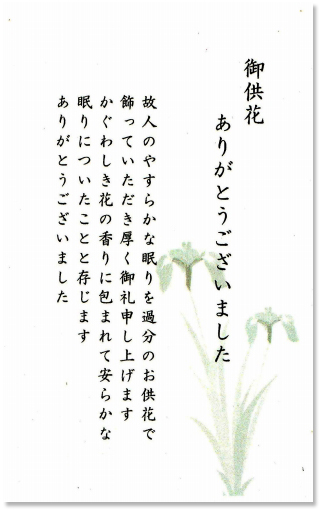 御供花
ありがとうございました
故人のやすらかな眠りを過分のお供花で
飾っていただき厚く御礼申し上げます
かぐわしき花の香りに包まれて安らかな
眠りについたことと存じます
ありがとうございました